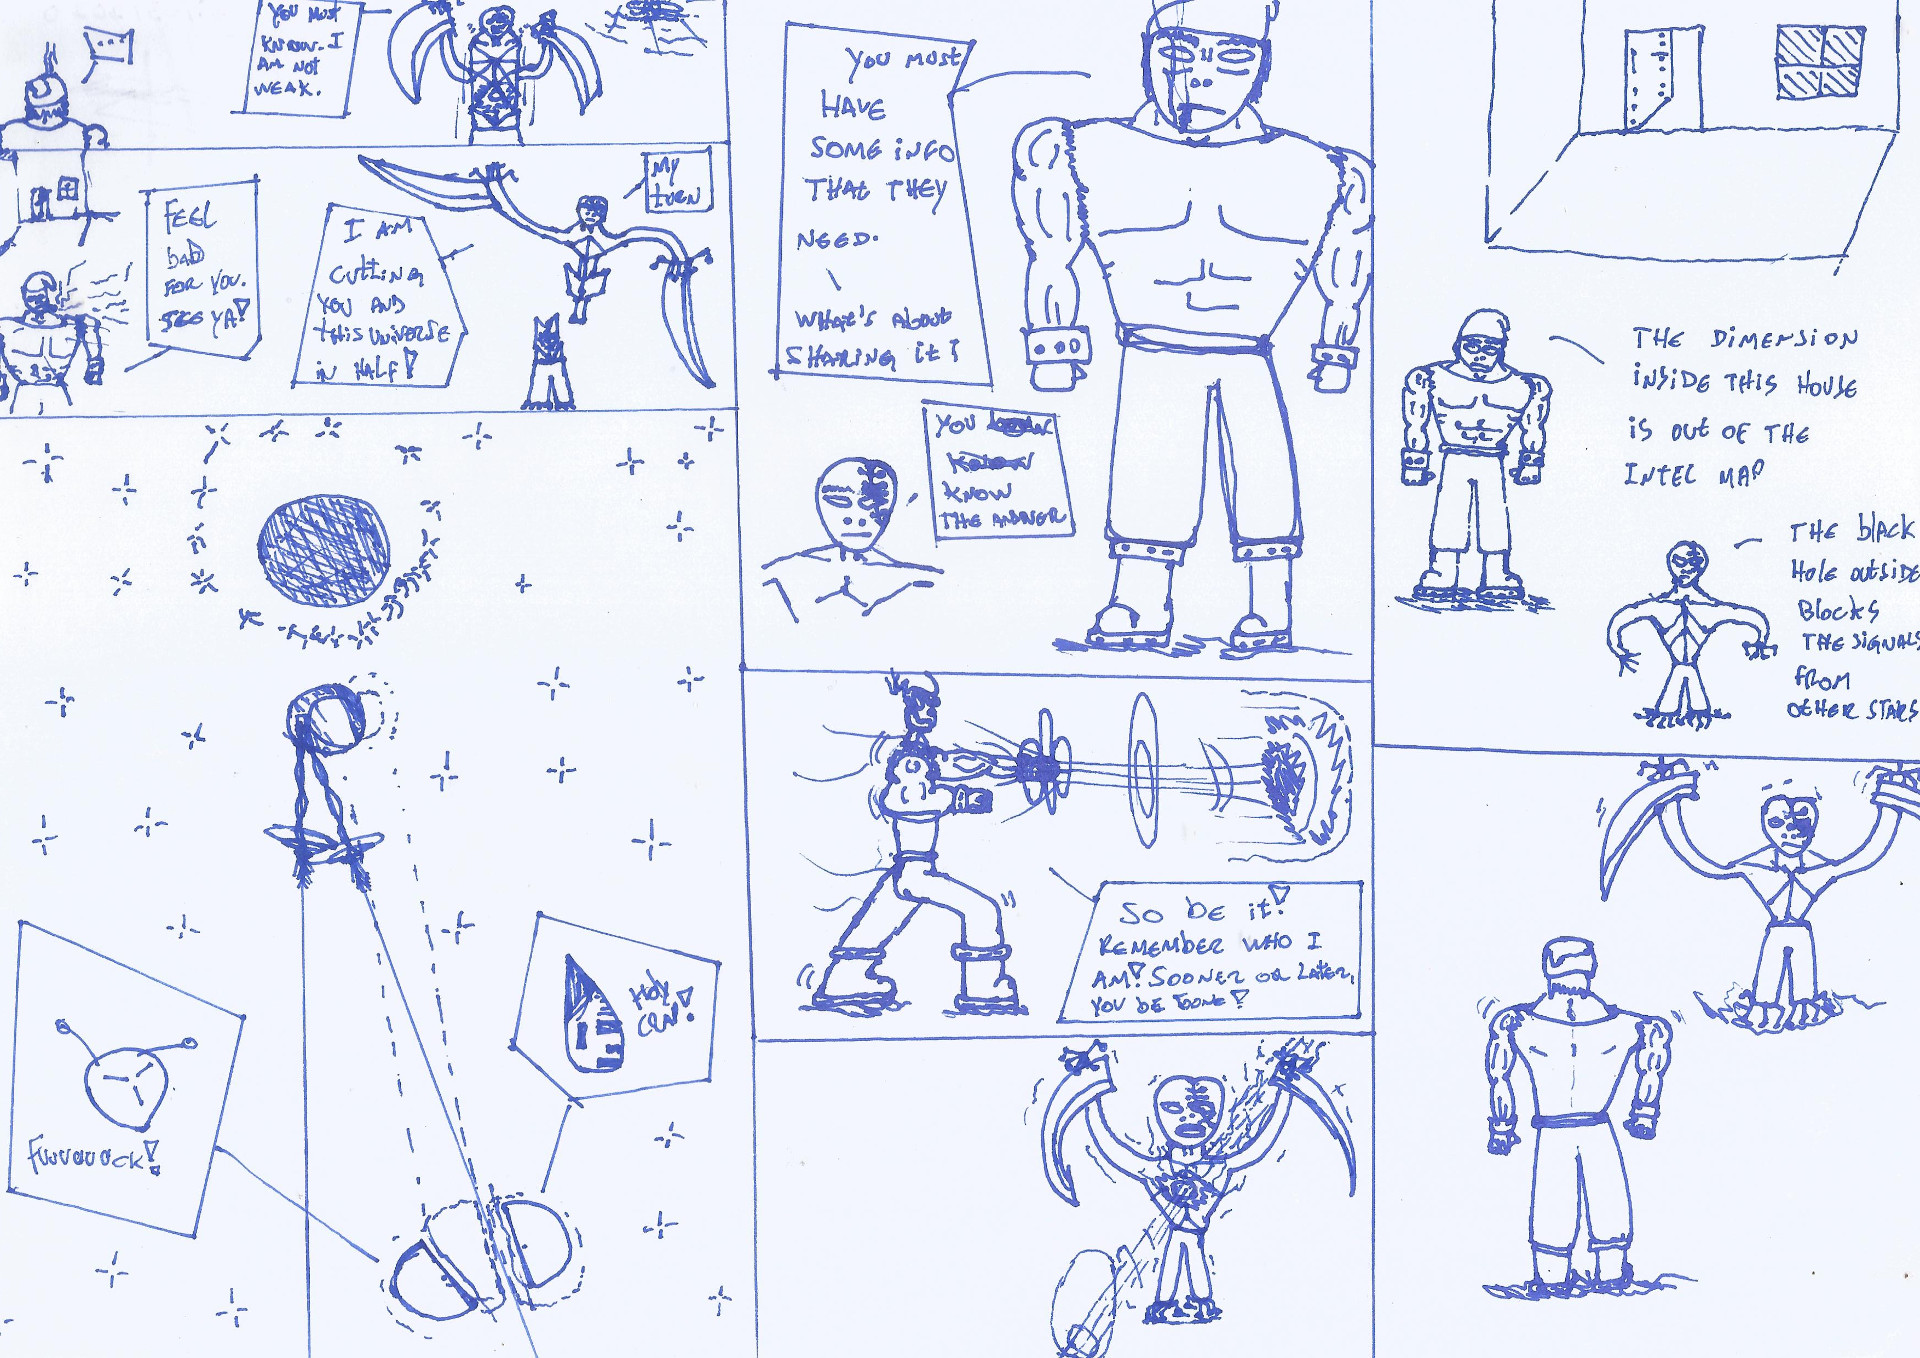 YOU MUST
KNOW. I
AM NOT
WEAK.
...
FEEL
bAD
FOR YOU.
SEE YA!
I AM
CUTTING
YOU AND
THIS UNIVERSE
IN HALF!
MY
TURN
FUUUUUUCK!
HOLY
CRAP!
YOU MUST
HAVE
SOME INFO
THAT THEY
NEED.
WHAT'S ABOUT
SHARING IT?
YOU
KNOW
THE ANSWER
SO BE IT!
REMEMBER WHO I
AM! SOONER OR LATER,
YOU BE DONE!
THE DIMENSION
INSIDE THIS HOUSE
IS OUT OF THE
INTEL MAP
THE bLACK
HOLE OUTSIDE
BLOCKS
THE SIGNALS
FROM
OTHER STARS